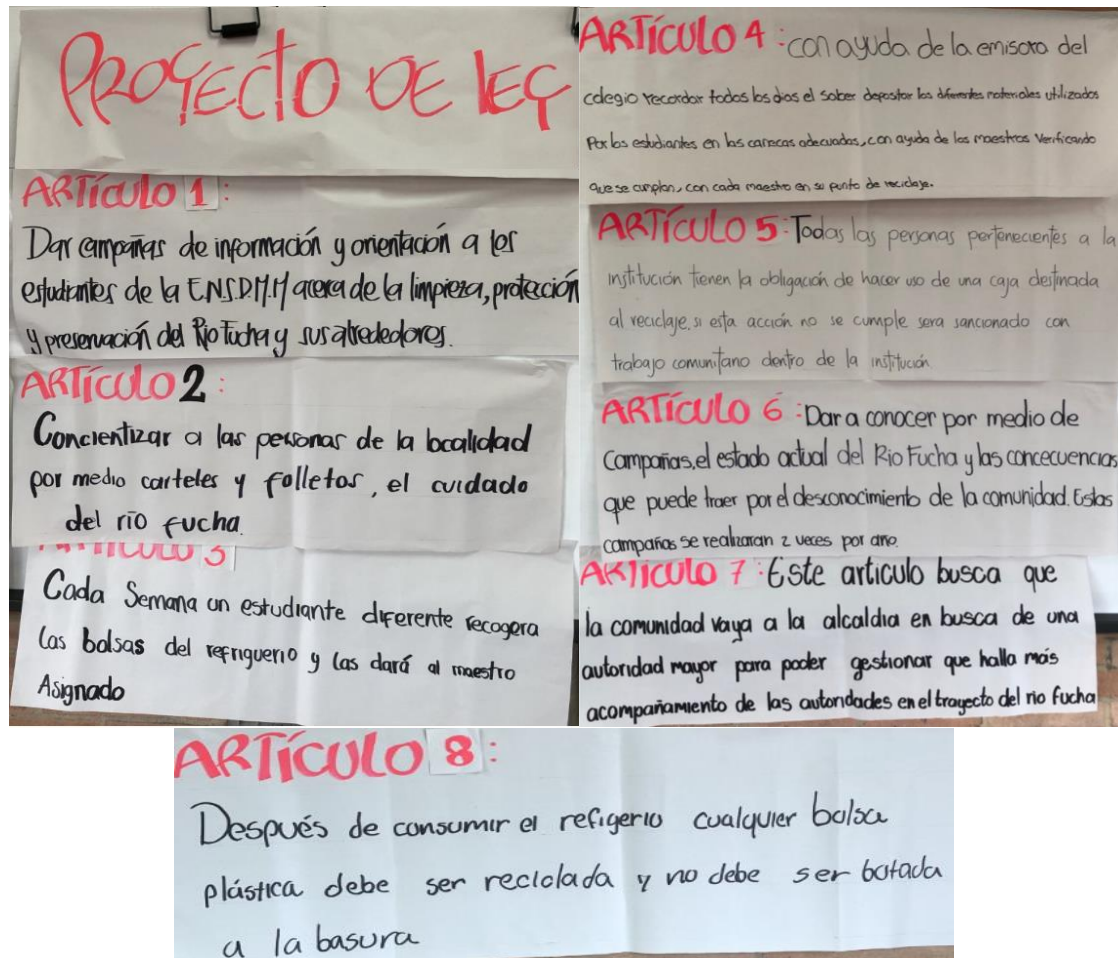 PROYECTO DE LEY
ARTÍCULO 1:
Dar campañas de información y orientación a los
estudiantes de la E.N.S.D.M.M acerca de la limpieza, protección
y preservación del Rio Fucha y sus alrededores.
ARTÍCULO 2:
Concientizar a las personas de la localidad
por medio carteles y folletos, el cuidado
del río fucha.
ARTÍCULO 3
Cada Semana un estudiante diferente recogera
las bolsas del refriguerio y las dará al maestro
Asignado
ARTÍCULO 4: con ayuda de la emisora del
colegio recordar todos los dias el saber depositar los diferentes materiales utilizados
Por los estudiantes en las canecas adecuadas, con ayuda de los maestros Verificando
que se cumplan, con cada maestro en su punto de reciclaje.
ARTÍCULO 5: Todas las personas pertenecientes a la
institución tienen la obligación de hacer uso de una caja destinada
al reciclaje, si esta acción no se cumple sera sancionado con
trabajo comunitario dentro de la institución.
ARTÍCULO 6: Dar a conocer por medio de
Campañas, el estado actual del Rio Fucha y las concecuencias
que puede traer por el desconocimiento de la comunidad. Estas
campañas se realizaran 2 veces por año.
ARTÍCULO 7: Este articulo busca que
la comunidad vaya a la alcaldia en busca de una
autoridad mayor para poder gestionar que halla más
acompañamiento de las autoridades en el trayecto del rio fucha
ARTÍCULO 8:
Después de consumir el refigerio cualquier bolsa
plástica debe ser reciclada y no debe ser botada
a la basura